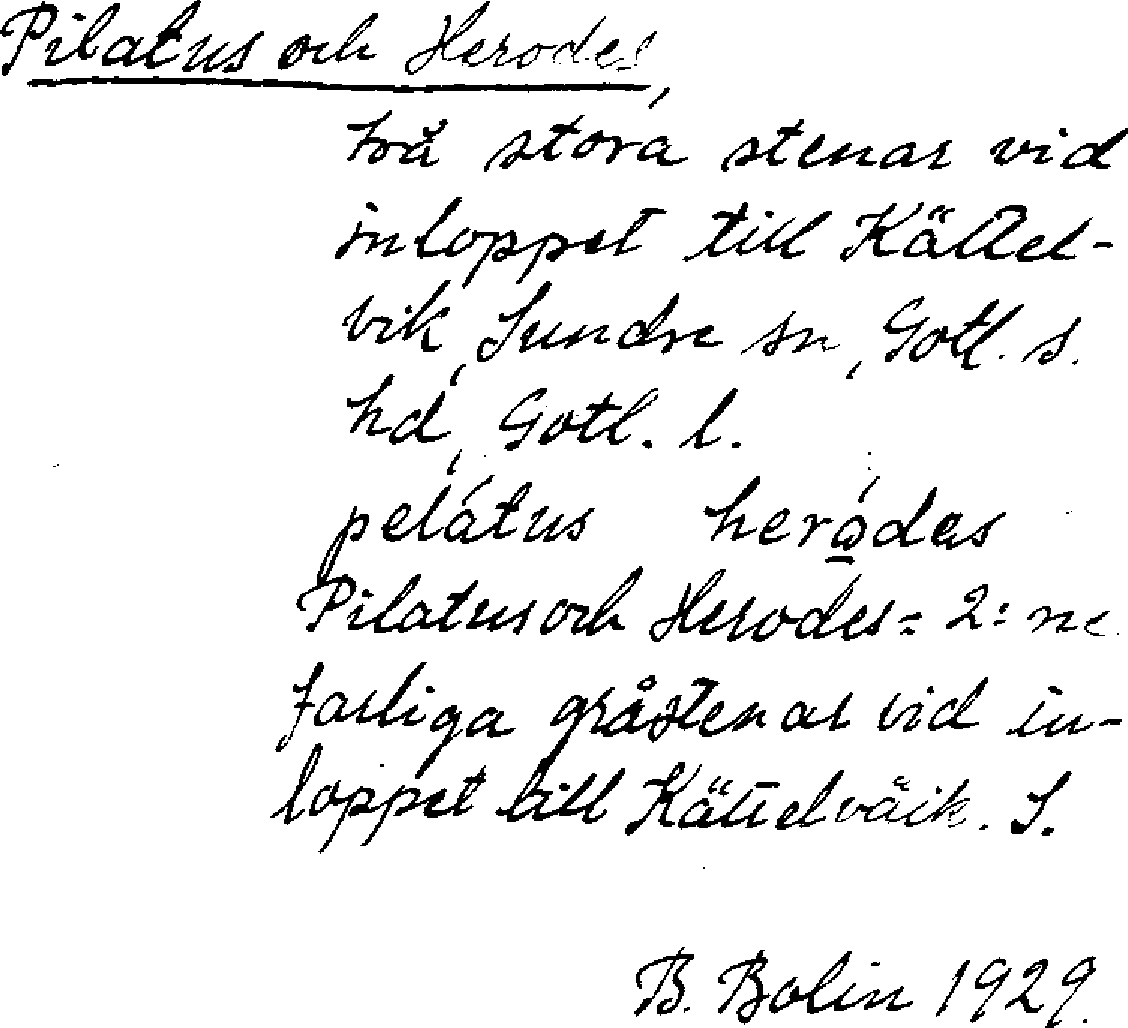 Pilatus och Herodes,
två stora stenar vid
inloppet till Kättel-
vik, Sundre sn, Gotl. s.
hd, Gotl. l.
pelátus herǫ́des
Pilatus och Herodes = 2:ne
farliga gråstenar vid in-
loppet till Kättelväik. S.
B. Bolin 1929.